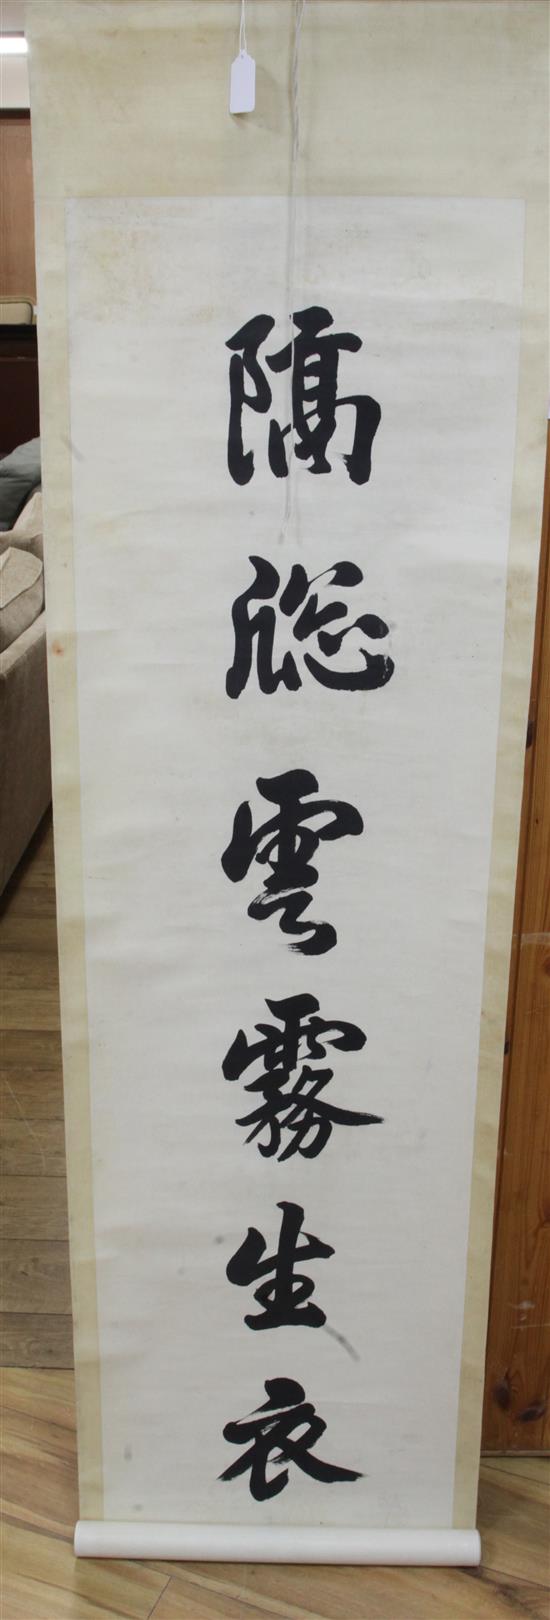 隔窗雲霧生衣